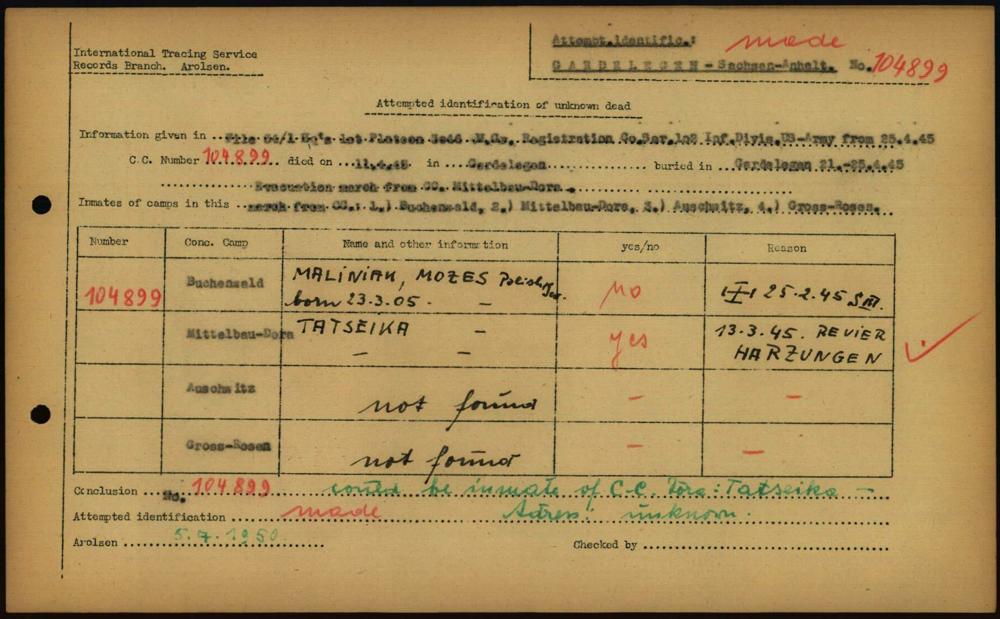 International Tracing Service
Records Branch. Arolsen.
Attempt.identific.: made
GARDELEGEN-Sachsen-Anhalt. No. 104899
Attempted identification of unknown dead
Information given in ..File 54/1 Hq's 1st Platoon Sedd .Registration Co.Ser.102 Inf.Divis.US-Army from 25.4.45
C.C. Number 104899 died on ...11.4.45 in ...Gardelegen........ buried in ...Gardelegen 21.-25.4.45
Evacuation march from CC. Mittelbau-Dora.
Inmates of camps in this ..march from CC.: 1.) Buchenwald, 2.) Mittelbau-Dora, 3.) Auschwitz, 4.) Gross-Rosen.
Number Conc. Camp Name and other information yes/no Reason
104899 Buchenwald MALINIAK, MOZES Polish Jew. born 23.3.05. - no 25.2.45
Mittelbau-Dora TATSEIKA - yes 13.3.45. REVIER HARZUNGEN
- -
Auschwitz not found - -
Gross-Rosen not found - -
Conclusion ...No. 104899 could be inmate of C.C. Dora: Tatseika -
Attempted identification made Adress: unknown.
Arolsen 5.7.1950 Checked by